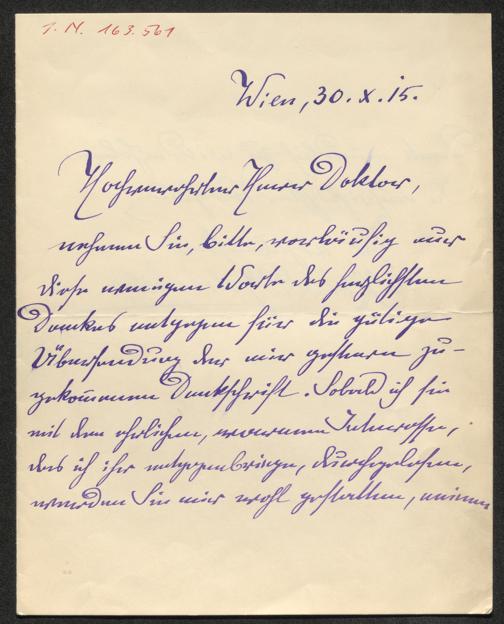 I. N. 163.561
Wien, 30. X. 15.
Hochverehrter Herr Doktor,
nehmen Sie, bitte, vorläufig nur
diese wenigen Worte des herzlichsten
Dankes entgegen für die gütige
Übersendung der mir gestern zu-
gekommenen Denkschrift. Sobald ich sie
mit dem ehrlichen, warmen Interesse,
das ich ihr entgegenbringe, durchgelesen,
werden Sie mir wohl gestatten, meinen